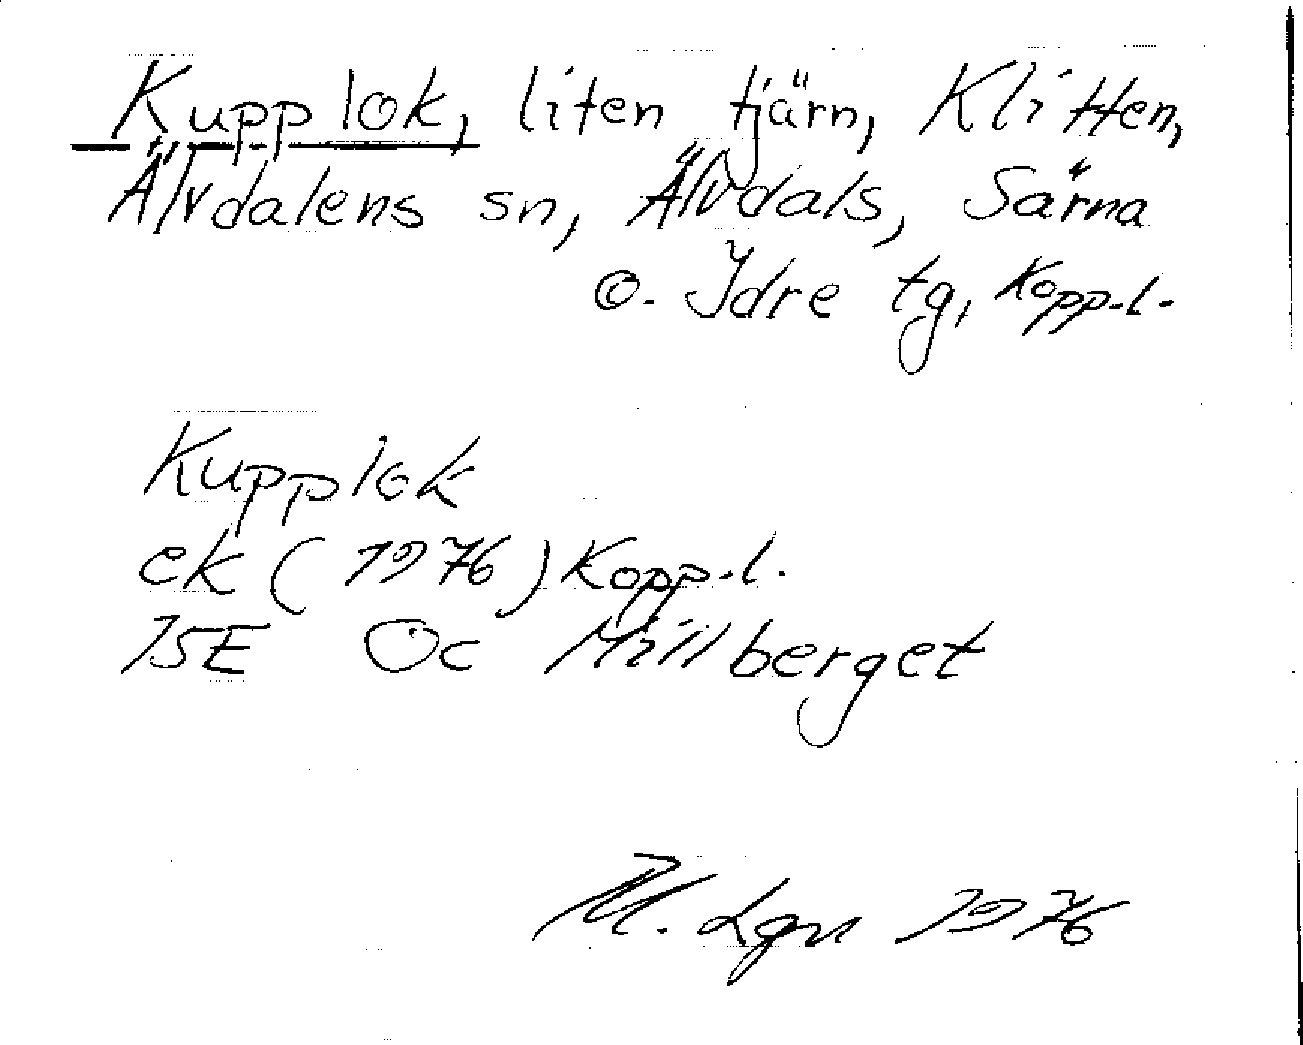 Kupplok, liten tjärn, Klitten,
Älvdalens sn, Älvdals, Särna
o. Idre tg, Kopp.l.
Kupplok
ek (1976) Kopp.l.
15E Oc Millberget
M. Lgn 1976